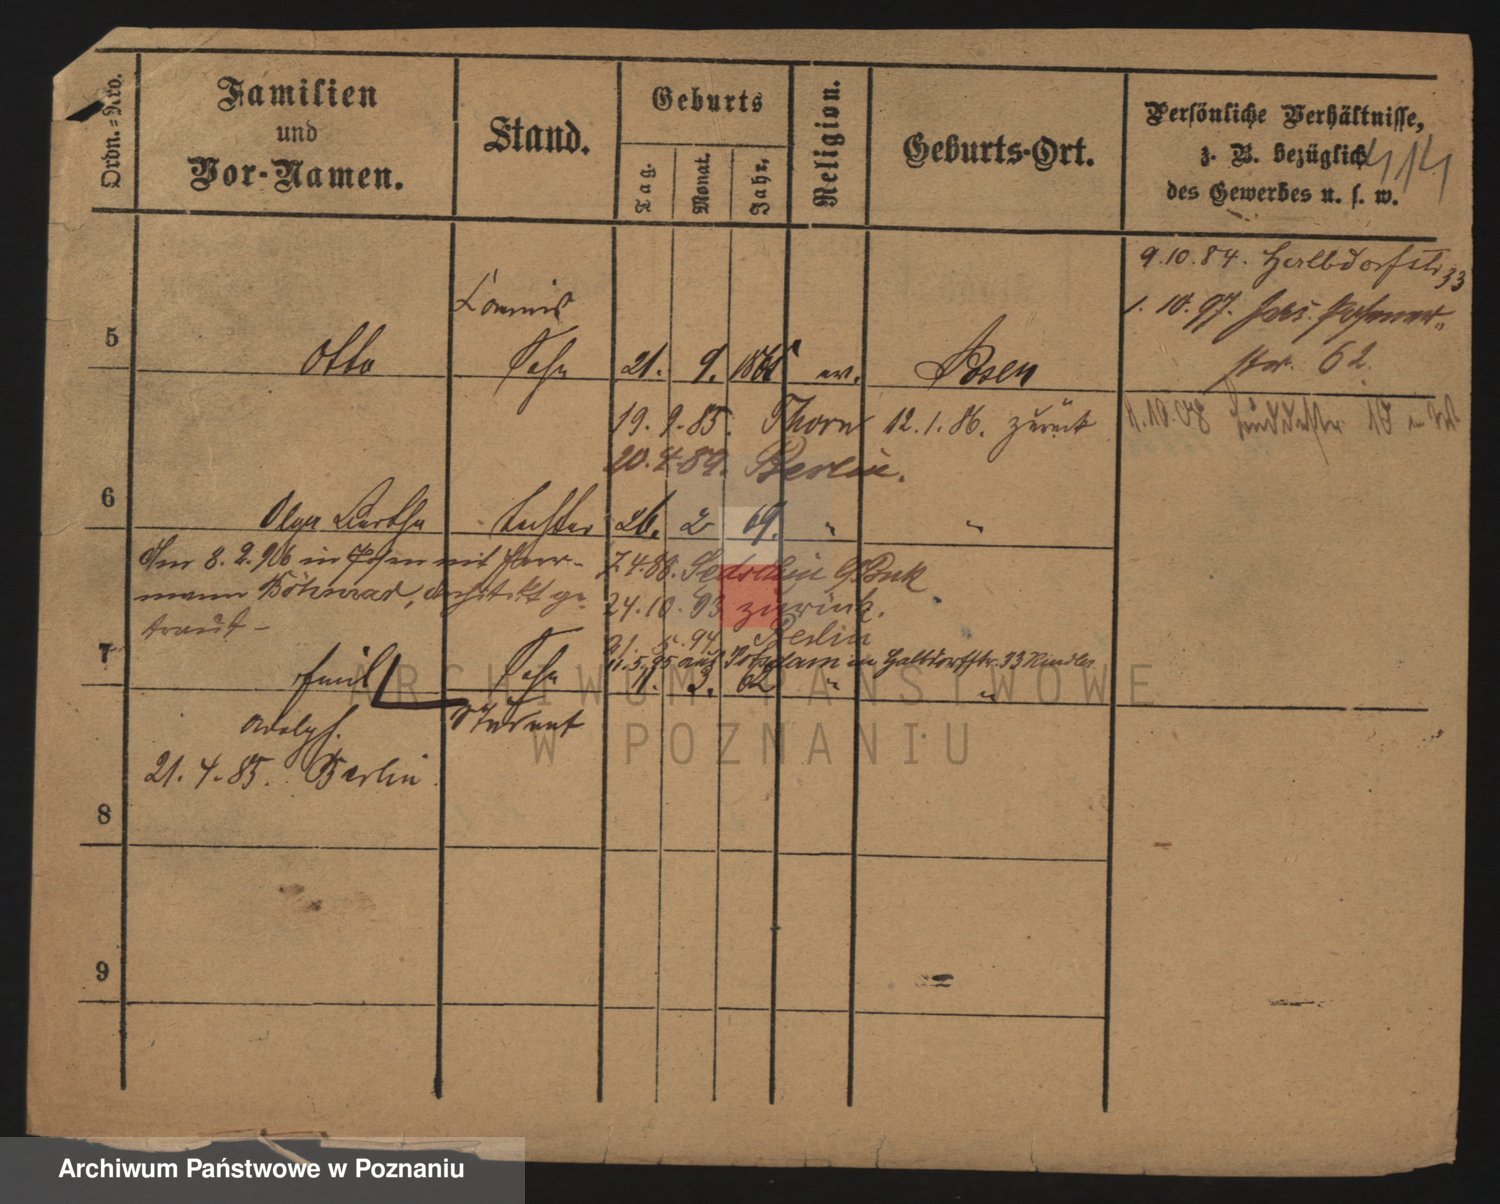 Ordn.=Nro.
Familien
und
Vor-Namen.
Stand.
Geburts
Tag.
Monat.
Jahr.
Religion.
Geburts-Ort.
Persönliche Verhältnisse,
z. B. bezüglich
des Gewerbes u. s. w.
414
9.10.84. Halbdorfstr 33
1.10.97.
str. 62.
Commis
5 Otto Sohn 21. 9. ev. Posen
19. 9. 85. Thorn 12.1.86. zurück
20.4.89. Berlin.
6 Olga Bertha Tochter 26. 2 69. " "
Am 8.2.96 in Posen mit Herr-
mann Böhmer, Architekt ge-
traut -
7.4.88.
24.10.93 zurück.
5.94 Berlin
11.5.95 aus Potsdam in Halbdorfstr. 33
7 Emil Sohn 11. 3. 62 " "
Adolph. Student
21.4.85. Berlin
8
9
ARCHIWUM PAŃSTWOWE
W POZNANIU
Archiwum Państwowe w Poznaniu